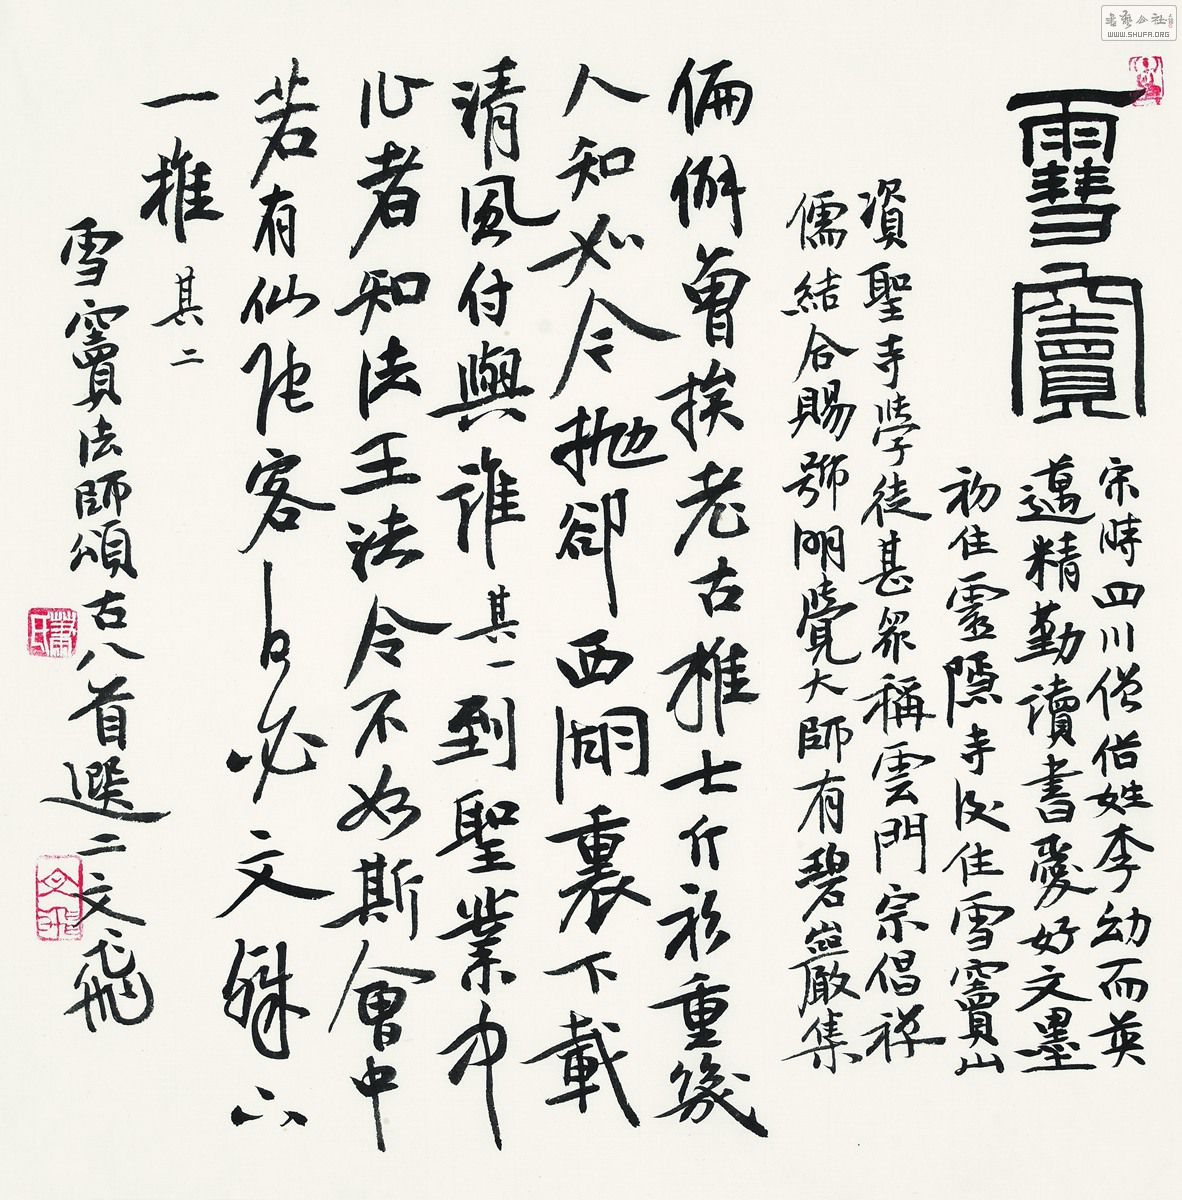 雪竇
宋時四川僧俗姓李幼而英
邁精勤讀書愛好文墨
初住靈隱寺後住雪竇山
資聖寺學徒甚眾稱雲門宗倡禪
儒結合賜號明覺大師有碧巖集
偏僻曾挨老古椎七斤衫重幾
人知如今拋卻西湖裏下載
清風付與誰 其一 到聖業中
作者知法王法令不如斯會中
若有仙陀客何必文殊下
一椎 其二
雪竇法師頌古八首選二文飛
蕭氏
文飛
WWW.SHUFA.ORG